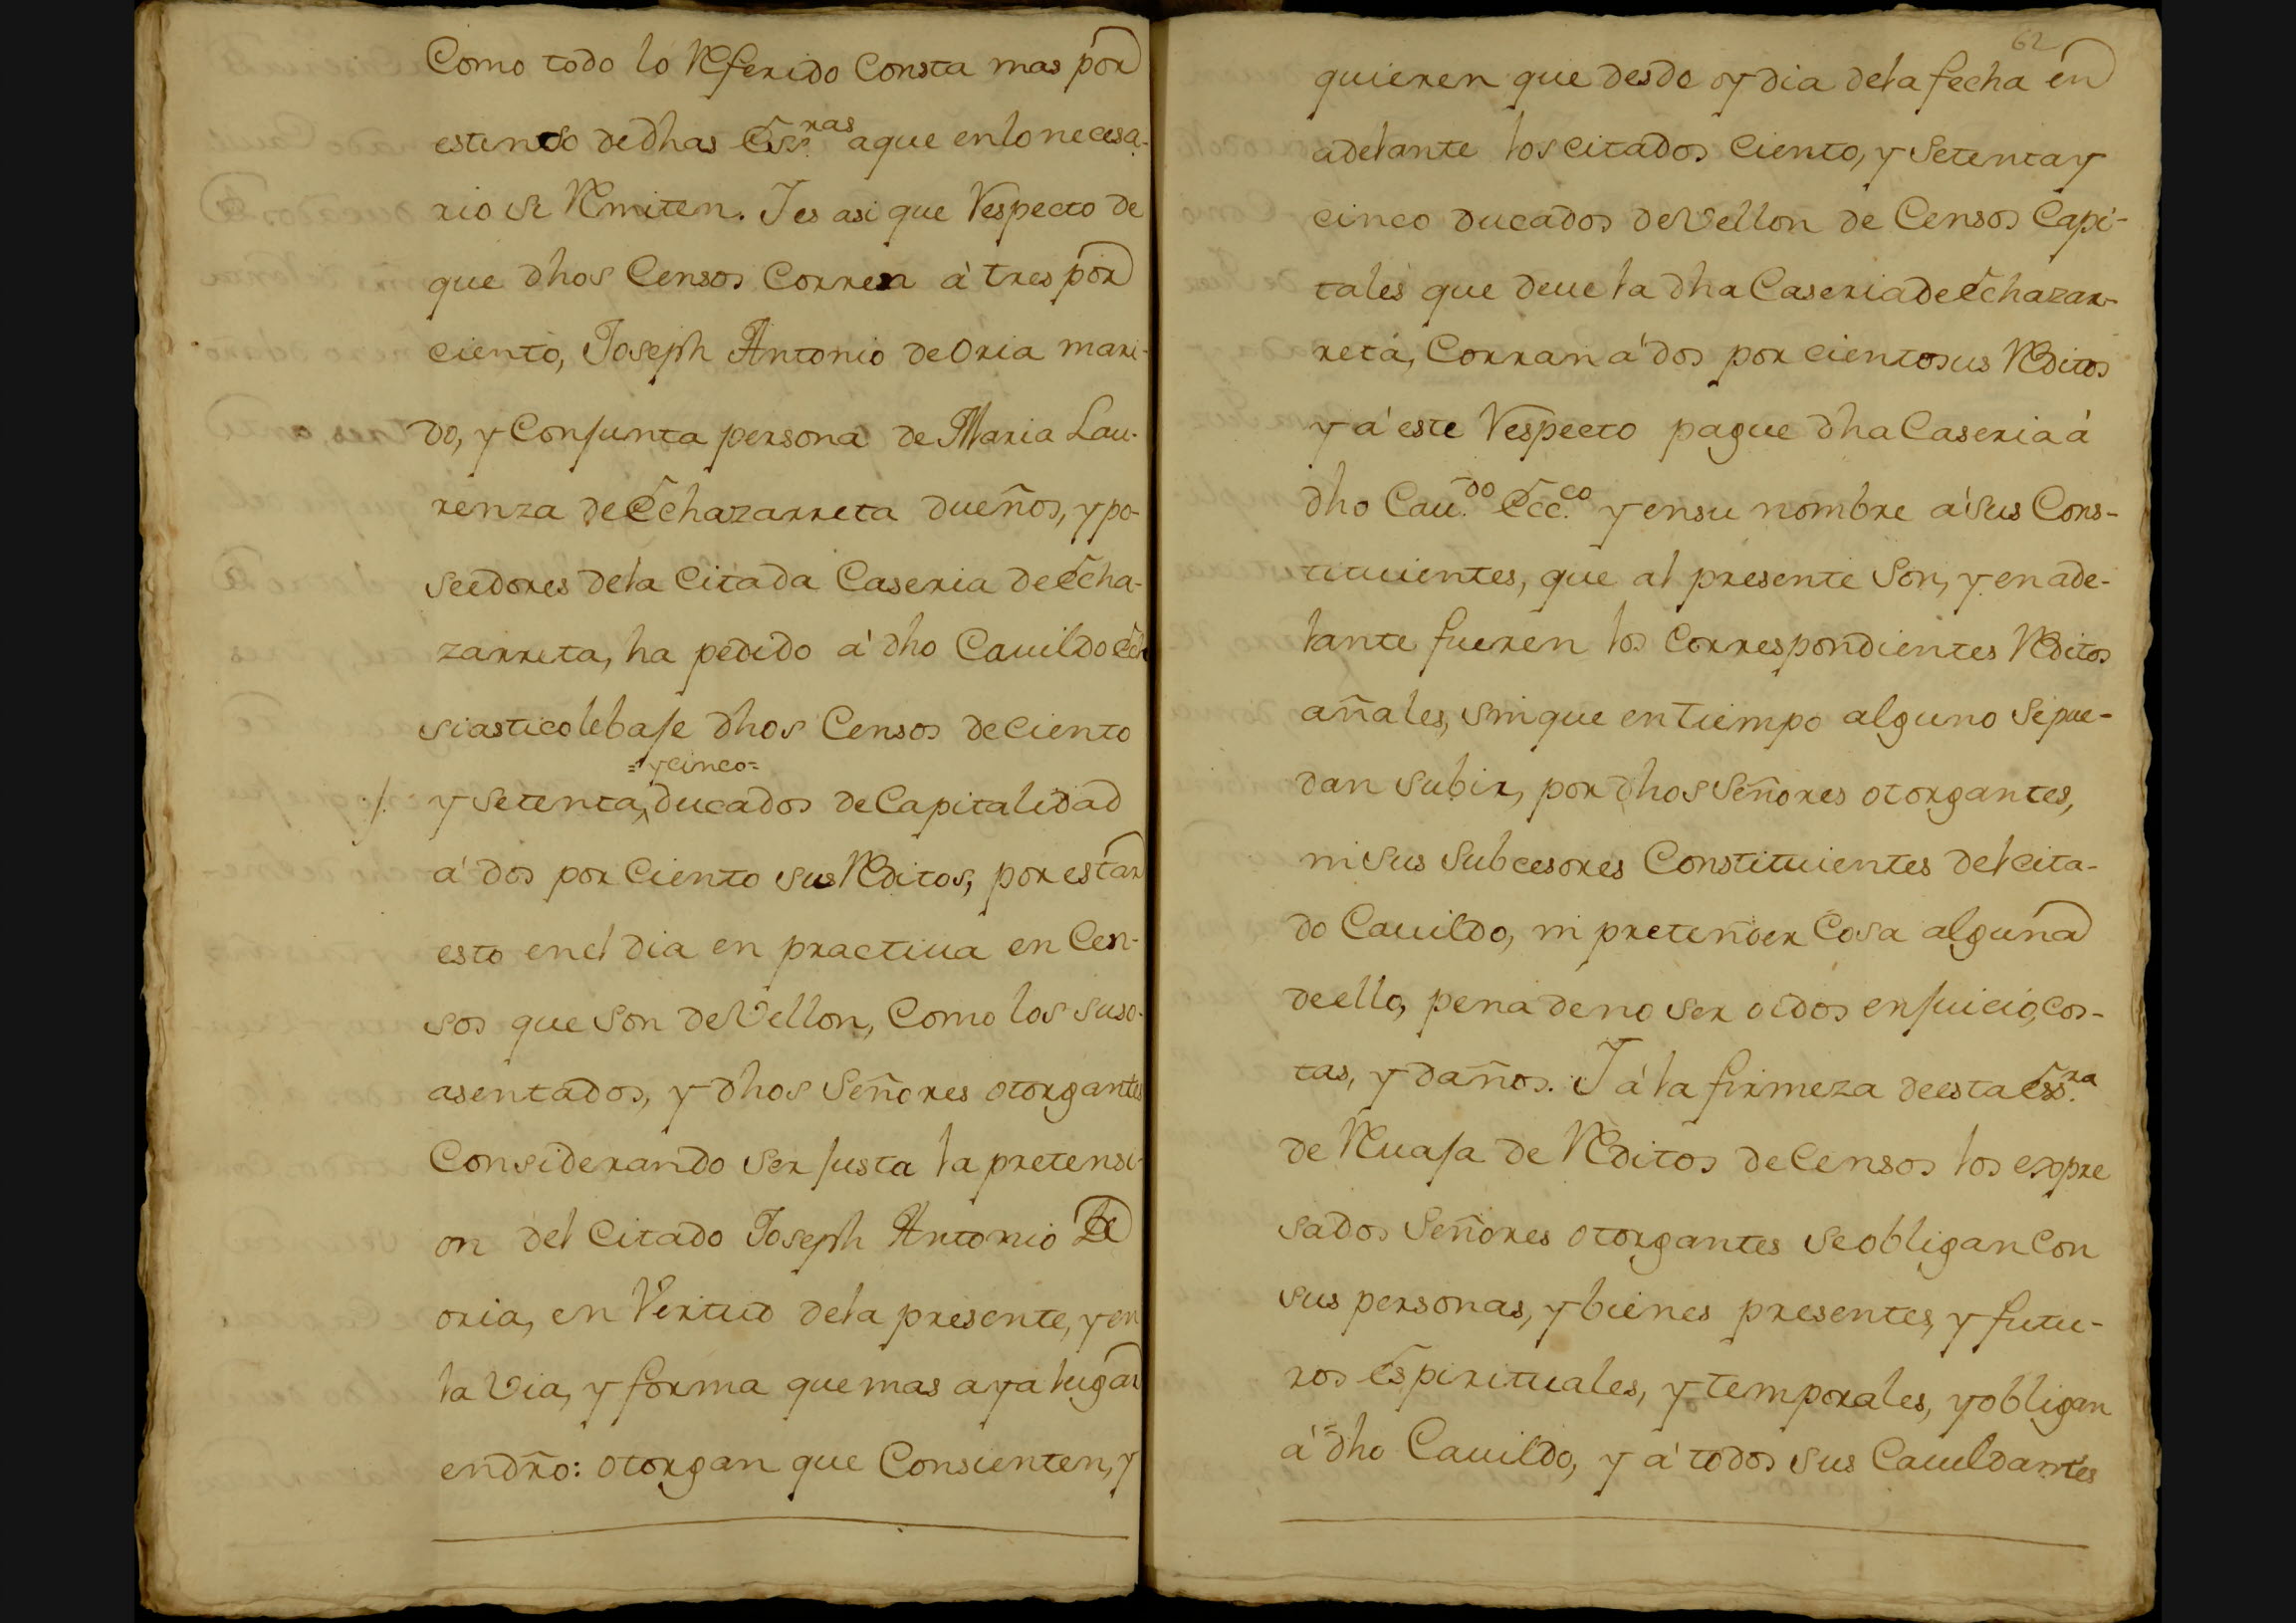 Como todo lo Referido Consta mas por
estenso de dhas Ess.ras a que en lo necesa-
rio se Remiten. I es asi que Respecto de
que dhos Censos Corren á tres por
ciento, Joseph Antonio de Oria mari-
do, y Conjunta persona de Maria Lau-
renza de Echazarreta dueños, y po-
seedores de la Citada Caseria de Echa-
zarreta, ha pedido á dho Cauildo Ecle
siastico le baje dhos Censos de Ciento
=ycinco=
/. y setenta, ducados de Capitalidad
á dos por Ciento sus Reditos, por estar
esto en el dia en practiua en Cen-
sos que son de Vellon, Como los suso-
asentados, y dhos Señores otorgantes
Considerando ser justa la pretensi-
on del Citado Joseph Antonio De
oria, en Virtud de la presente, y en
la Via, y forma que mas aya lugar
en dro: otorgan que Consienten, y
62
quieren que desde oy dia de la fecha en
adelante los citados Ciento, y Setenta y
cinco ducados de Vellon de Censos Capi-
tales que deue la dha Caseria de Echazar-
reta, Corran á dos por ciento sus Reditos
y á este Respecto pague dha Caseria á
dho Cau.do Ecc.co y en su nombre á sus Cons-
tituientes, que al presente Son, y en ade-
lante fueren los Correspondientes Reditos
añales, sin que en tiempo alguno se pue-
dan subir, por dhos Señores otorgantes,
ni sus Subcesores Constituientes del cita-
do Cauildo, ni pretender Cosa alguna
de ello, pena de no ser oidos en juicio, cos-
tas, y daños. I á la firmeza de esta Ess.ra
de Reuaja de Reditos de Censos los expre
sados Señores otorgantes se obligan Con
sus personas, y bienes presentes, y futu-
ros Espirituales, y temporales, y obligan
á dho Cauildo, y á todos sus Cauildantes